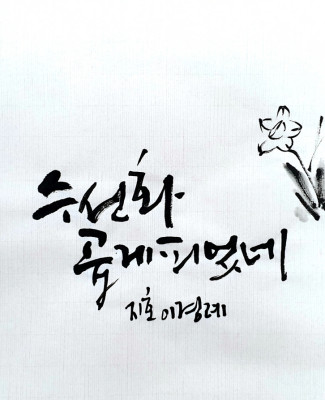 수선화
곱게 피었네
지호 이경례